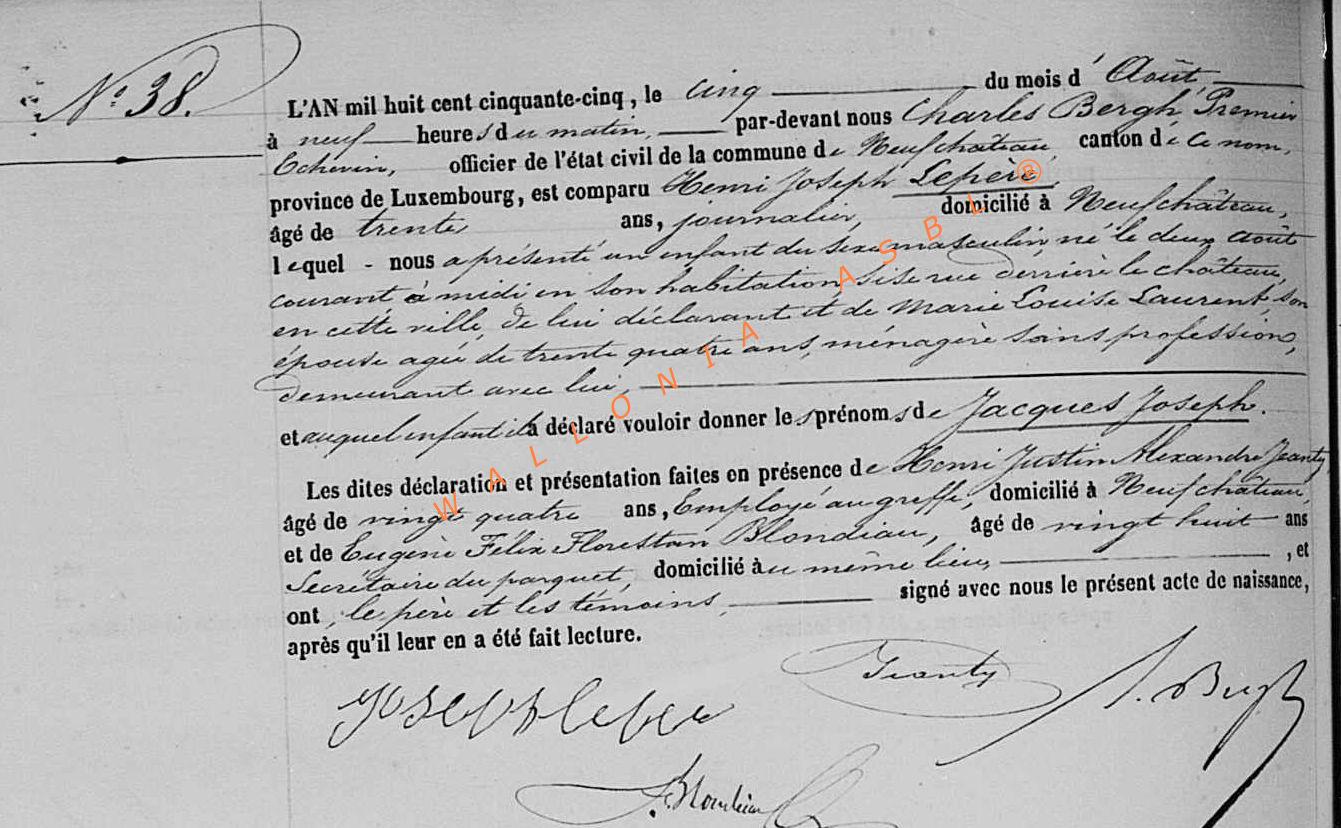 N° 38.
L'AN mil huit cent cinquante-cinq, le cinq du mois d' Août
à neuf heures du matin, par-devant nous Charles Bergh, Premier
Echevin, officier de l'état civil de la commune de Neufchâteau, canton de ce nom,
province de Luxembourg, est comparu Henri Joseph Lepère,
âgé de trente ans, journalier, domicilié à Neufchâteau,
lequel - nous a présenté un enfant du sexe masculin, né le deux Août
courant à midi en son habitation, sise rue derrière le château,
en cette ville, de lui déclarant et de Marie Louise Laurent, son
épouse agée de trente quatre ans, ménagère sans profession,
demeurant avec lui,
et auquel enfant il a déclaré vouloir donner les prénoms de Jacques Joseph.
Les dites déclaration et présentation faites en présence de Henri Justin Alexandre Jeanty
âgé de vingt quatre ans, Employé au greffe, domicilié à Neufchâteau,
et de Eugène Félix Florestan Blondiau, âgé de vingt huit ans
Secrétaire du parquet, domicilié au même lieu, , et
ont le père et les témoins, signé avec nous le présent acte de naissance,
après qu'il leur en a été fait lecture.
Jeanty
Bergh
Joseph lepere
Blondiau
WALLONIA ASBL ®